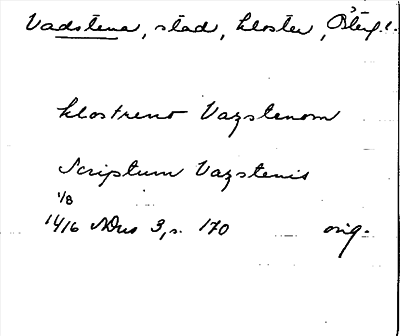 Vadstena, stad, kloster, Östg. l.
klostreno Vazstenom
Scriptum Vazstenis
1/8
1416 NDns 3, s. 170 orig.